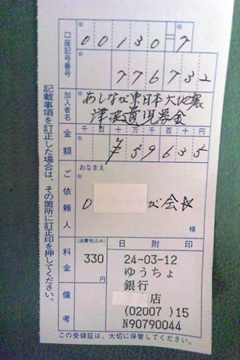 口座記号番号
00130 7
776732
加入者名
あしなが東日本大地震
津波遺児募金
金額
千百十万千百十円
¥59635
ご依頼人
おなまえ
様
料金
(消費税込み)
330円
日附印
24-03-12
ゆうちょ
銀行
店
(02007)15
N90790044
備考
この受領証は、大切に保管してください。
記載事項を訂正した場合は、その箇所に訂正印を押してください。